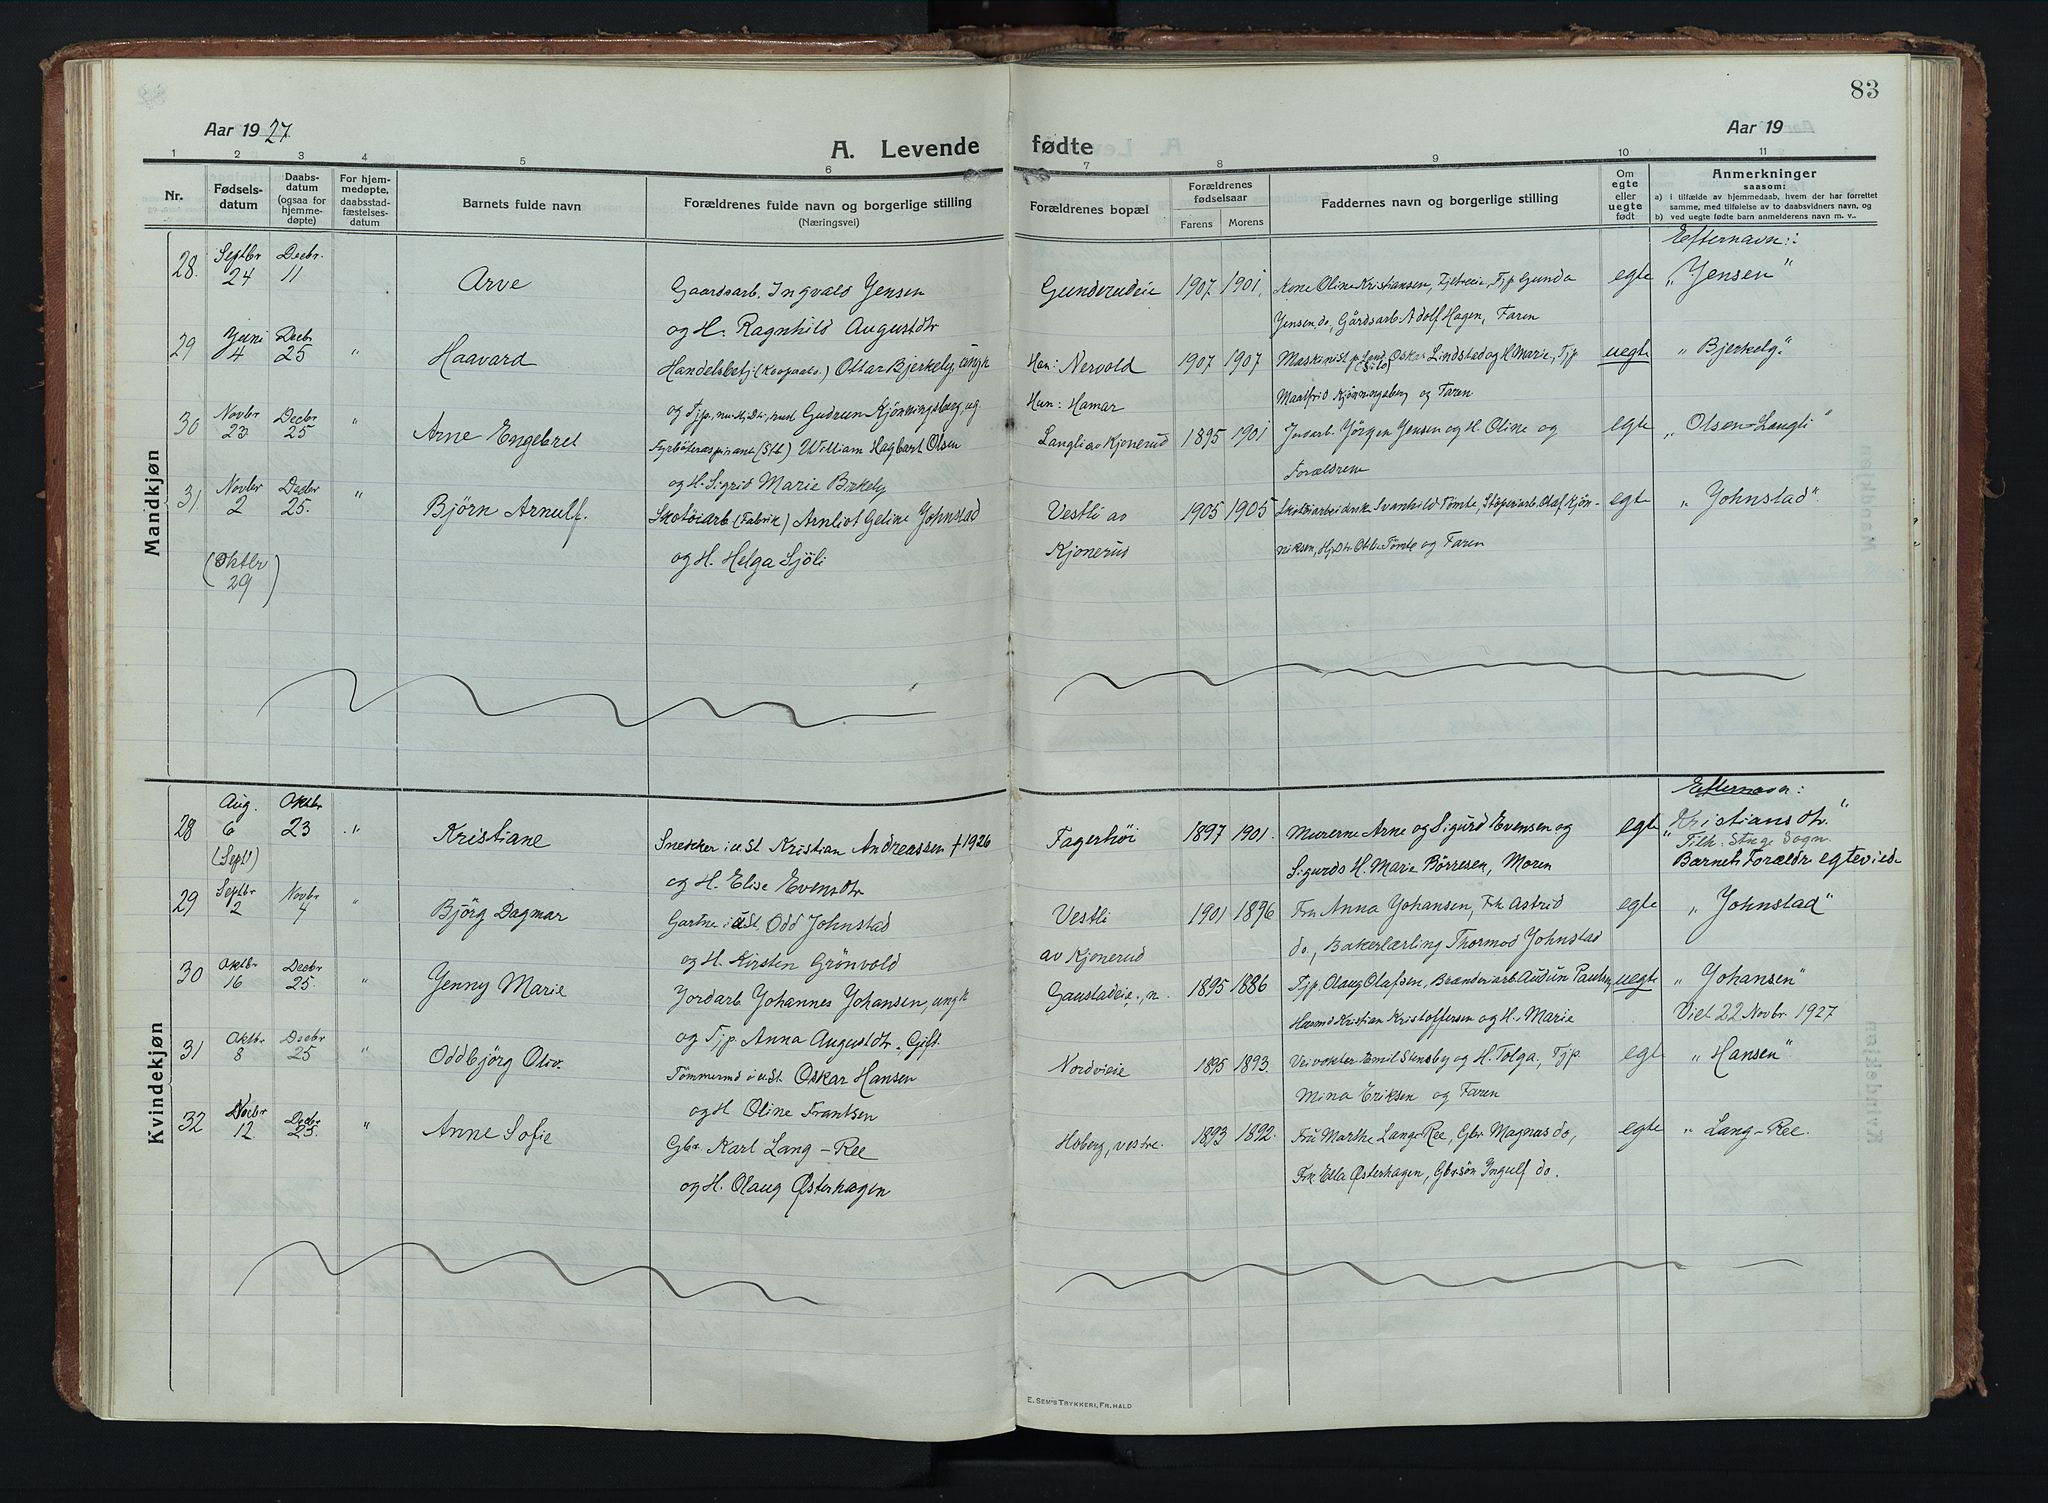 83
Aar 1927
A. Levende fødte
Aar 19
1 2 3 4 5 6 7 8 9 10 11
Nr.
Fødsels-
datum
Daabs-
datum
(ogsaa for
hjemme-
døpte)
For hjem-
medøpte,
daabsstad-
fæstelses-
datum
Barnets fulde navn
Forældrenes fulde navn og borgerlige stilling
(Næringsvei)
Forældrenes bopæl
Forældrenes
fødselsaar
Farens Morens
Faddernes navn og borgerlige stilling
Om
egte
eller
uegte
født
Anmerkninger
saasom:
a) i tilfælde av hjemmedaab, hvem der har forrettet
samme, med tilføielse av to daabsvidners navn, og
b) ved uegte fødte barn anmelderens navn m. v..
Mandkjøn
Efternavn:
28. Septbr 24 Decbr. 11 Arve Gaardsarb. Ingvald Jensen Gunderudeie 1907 1901. Kone Oline Kristiansen, Fjeltveie, Tjp Gunda egte „Jensen"
og H. Ragnhild Augustdtr Jensen, do, Gårdsarb Adolf Hagen, Faren
29 Juni 4 Decbr 25 " Haavard Handelsbetj. Ottar Bjerkely, ungk Han: Nervold 1907 1907 Maskinist Oskar Lindstad og H Marie, Tjp uegte „Bjerkely."
og Tjp. Gudrun Kjönningsberg, ug. Hun: Hamar Maalfrid Kjönningsberg og Faren
30 Novbr 23 Decbr 25 " Arne Engebret Fyrbøteraspirant (Stb) William Hagbart Olsen Langli av Kjonerud 1895 1901 Jordarb. Jörgen Jensen og H. Oline og egte „Olsen-Langli"
og H. Sigrid Marie Birkely Forældrene
31. Novbr 2 Decbr 25. " Björn Arnulf. Skotöiarb (Fabrik) Arnliot Geline Johnstad Vestli av 1905 1905 Svanhild Tömte, Støperiarb. Olaf Kjön- egte „Johnstad"
og H. Helga Sjöli Kjonerud niksen, Tömte og Faren
(Oktbr
29)
Kvindekjøn
Efternavn:
28 Aug. 6 Oktbr 23 " Kristiane Snekker i u. St. Kristian Andreassen † 1926 Fagerhöi 1897 1901. Murerne Arne og Sigurd Evensen og egte „Kristiansdtr."
(Sept) og H. Elise Evensdtr Sigurds H. Marie Börresen, Moren Tilh. Stange Sogn.
Barnets Forældr egteviede
29 Septbr 2 Novbr 4 " Björg Dagmar Gartner i u St. Odd Johnstad Vestli 1901 1896 Fru Anna Johansen, Frk Astrid egte „Johnstad"
og H. Kirsten Grönvold av Kjonerud do, Bakerlærling Thormod Johnstad
30 Oktbr 16 Decbr 25. " Jenny Marie Jordarb Johannes Johansen, ungk Gaustadeie, n. 1895 1886 Tjp. Olaug Olafsen, Brænderiarb. Audun Paulsen, uegte „Johansen"
og Tjp Anna Augustdtr, Gift. Husmd Kristian Kristoffersen og H. Marie Viet 22 Novbr 1927
31 Oktbr 8 Decbr 25 " Oddbjörg Oliv. Tömmermd i u. St. Oskar Hansen Nordvieie 1895 1893. Veivokter Emil Stensby og H. Tolga, Tjp. egte „Hansen"
og H Oline Frantsen Mina Eriksen og Faren
32 Novbr 12 Decbr 25. " Anne Sofie Gbr. Karl Lang-Ree Hoberg, vestre. 1893 1892. Fru Marthe Lang-Ree, Gbr Magnus do, egte „Lang-Ree.
og H. Olaug Østerhagen Frk Ella Østerhagen, Gbrsön Ingulf do.
E. SEM'S TRYKKERI, FR.HALD